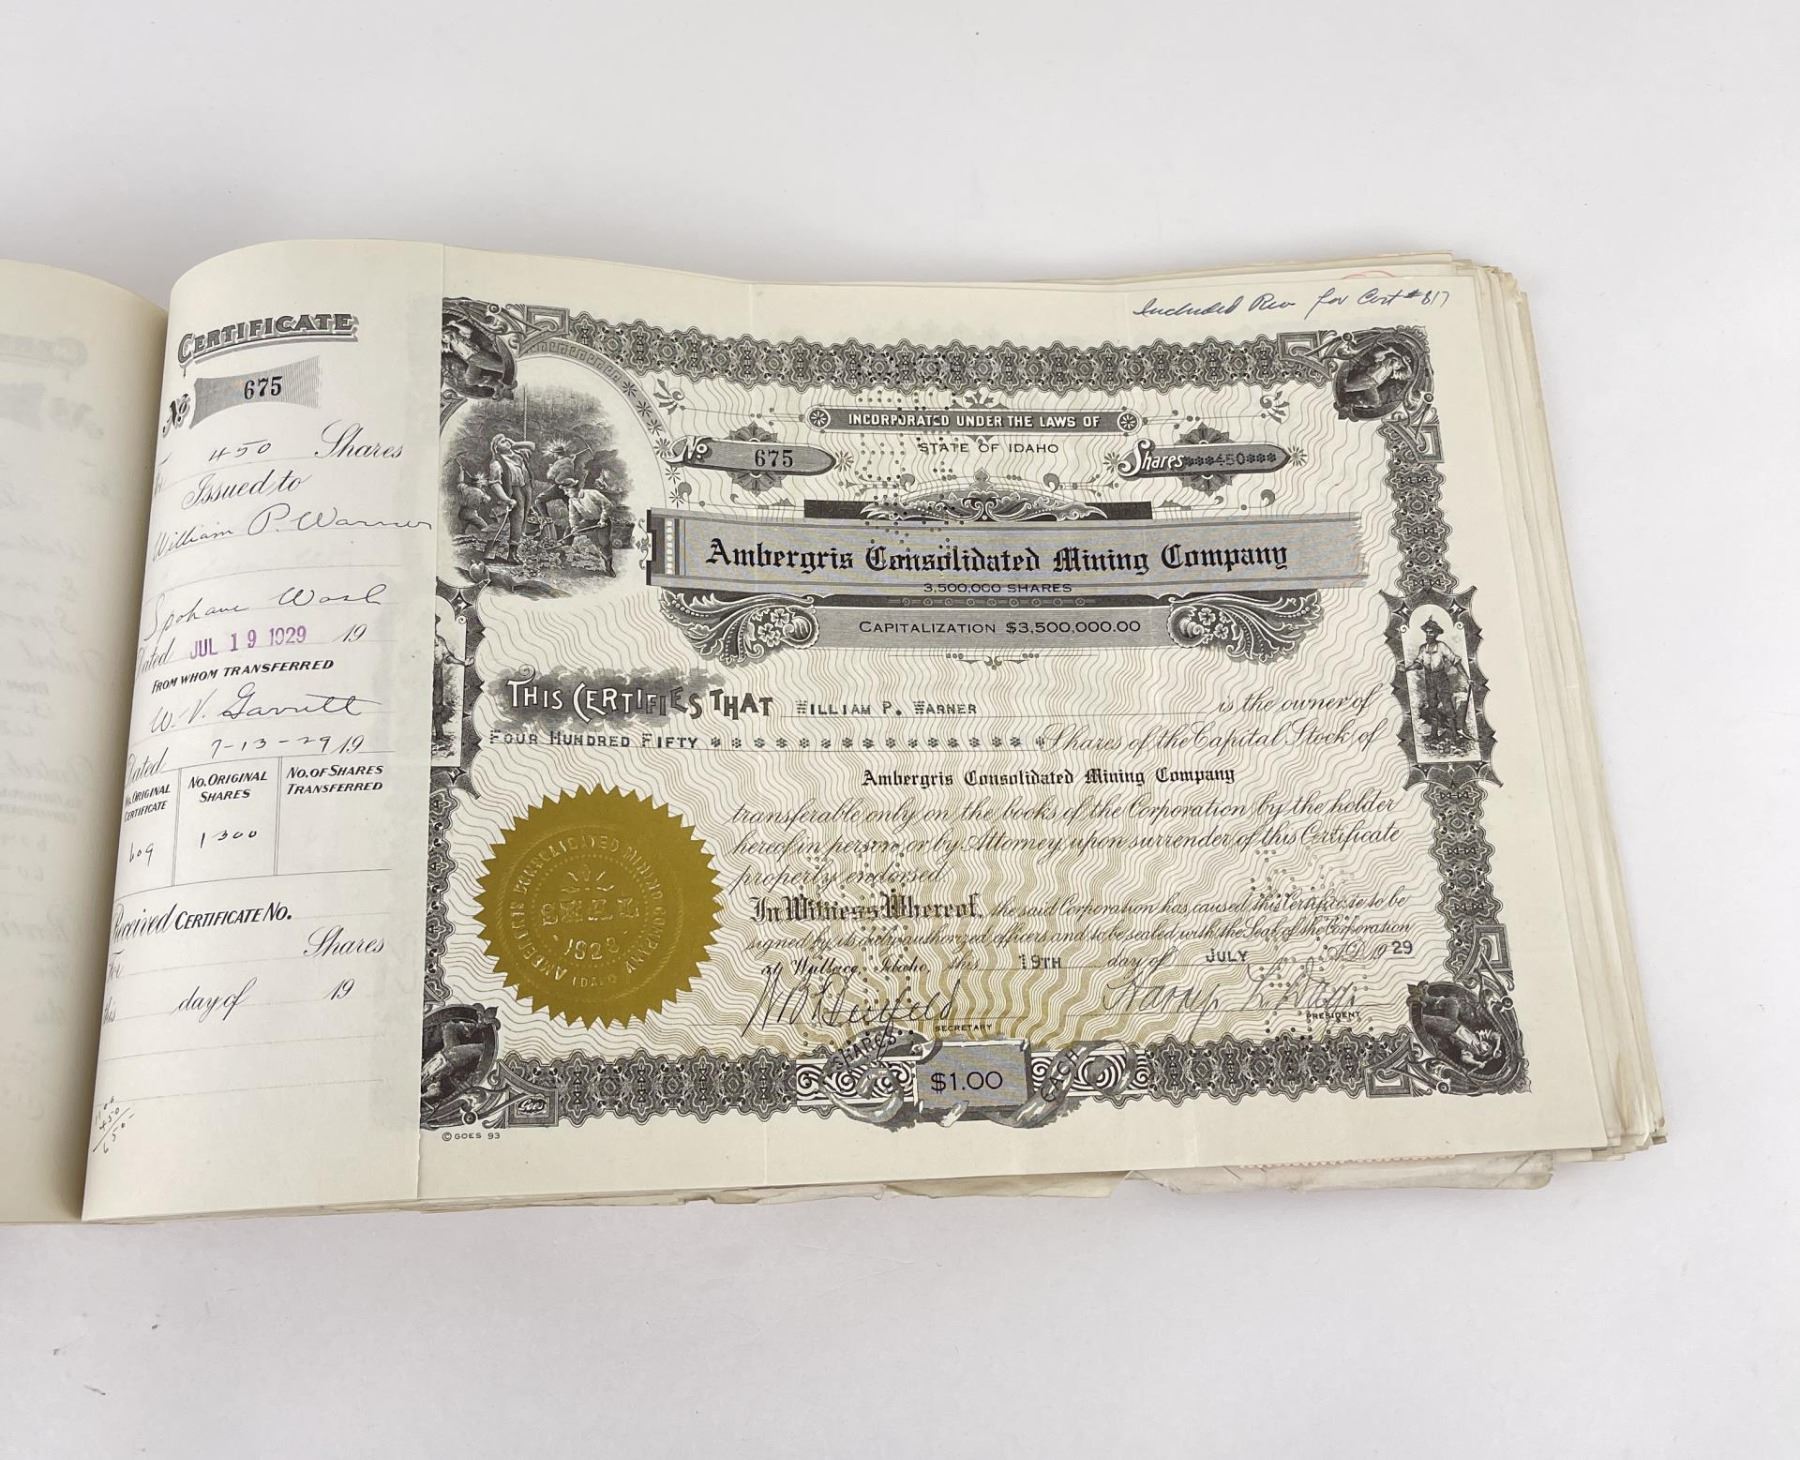 CERTIFICATE
No 675
450 Shares
Issued to
William P. Warner
Spokane Wash
Dated JUL 19 1929 19
FROM WHOM TRANSFERRED
W. V. Garrett
Dated 7-13-29 19
No. ORIGINAL CERTIFICATE
No. ORIGINAL SHARES
No. OF SHARES TRANSFERRED
609
1300
Received CERTIFICATE No.
Shares
this day of 19
450
Included Rev for Cert # 817
INCORPORATED UNDER THE LAWS OF
STATE OF IDAHO
No. 675
Shares ***450***
Ambergris Consolidated Mining Company
3,500,000 SHARES
CAPITALIZATION $3,500,000.00
THIS CERTIFIES THAT WILLIAM P. WARNER is the owner of
FOUR HUNDRED FIFTY * * * * * * * * * * * * * Shares of the Capital Stock of
Ambergris Consolidated Mining Company
transferable only on the books of the Corporation by the holder
hereof in person, or by Attorney, upon surrender of this Certificate
properly endorsed.
In Witness Whereof, the said Corporation has caused this Certificate to be
signed by its duly authorized officers and to be sealed with the Seal of the Corporation
at Wallace, Idaho, this 19TH day of JULY A.D. 1929
Harry L. Day
SECRETARY
PRESIDENT
AMBERGRIS CONSOLIDATED MINING COMPANY
SEAL
1928
IDAHO
SHARES
$1.00
EACH
GOES
© GOES 93